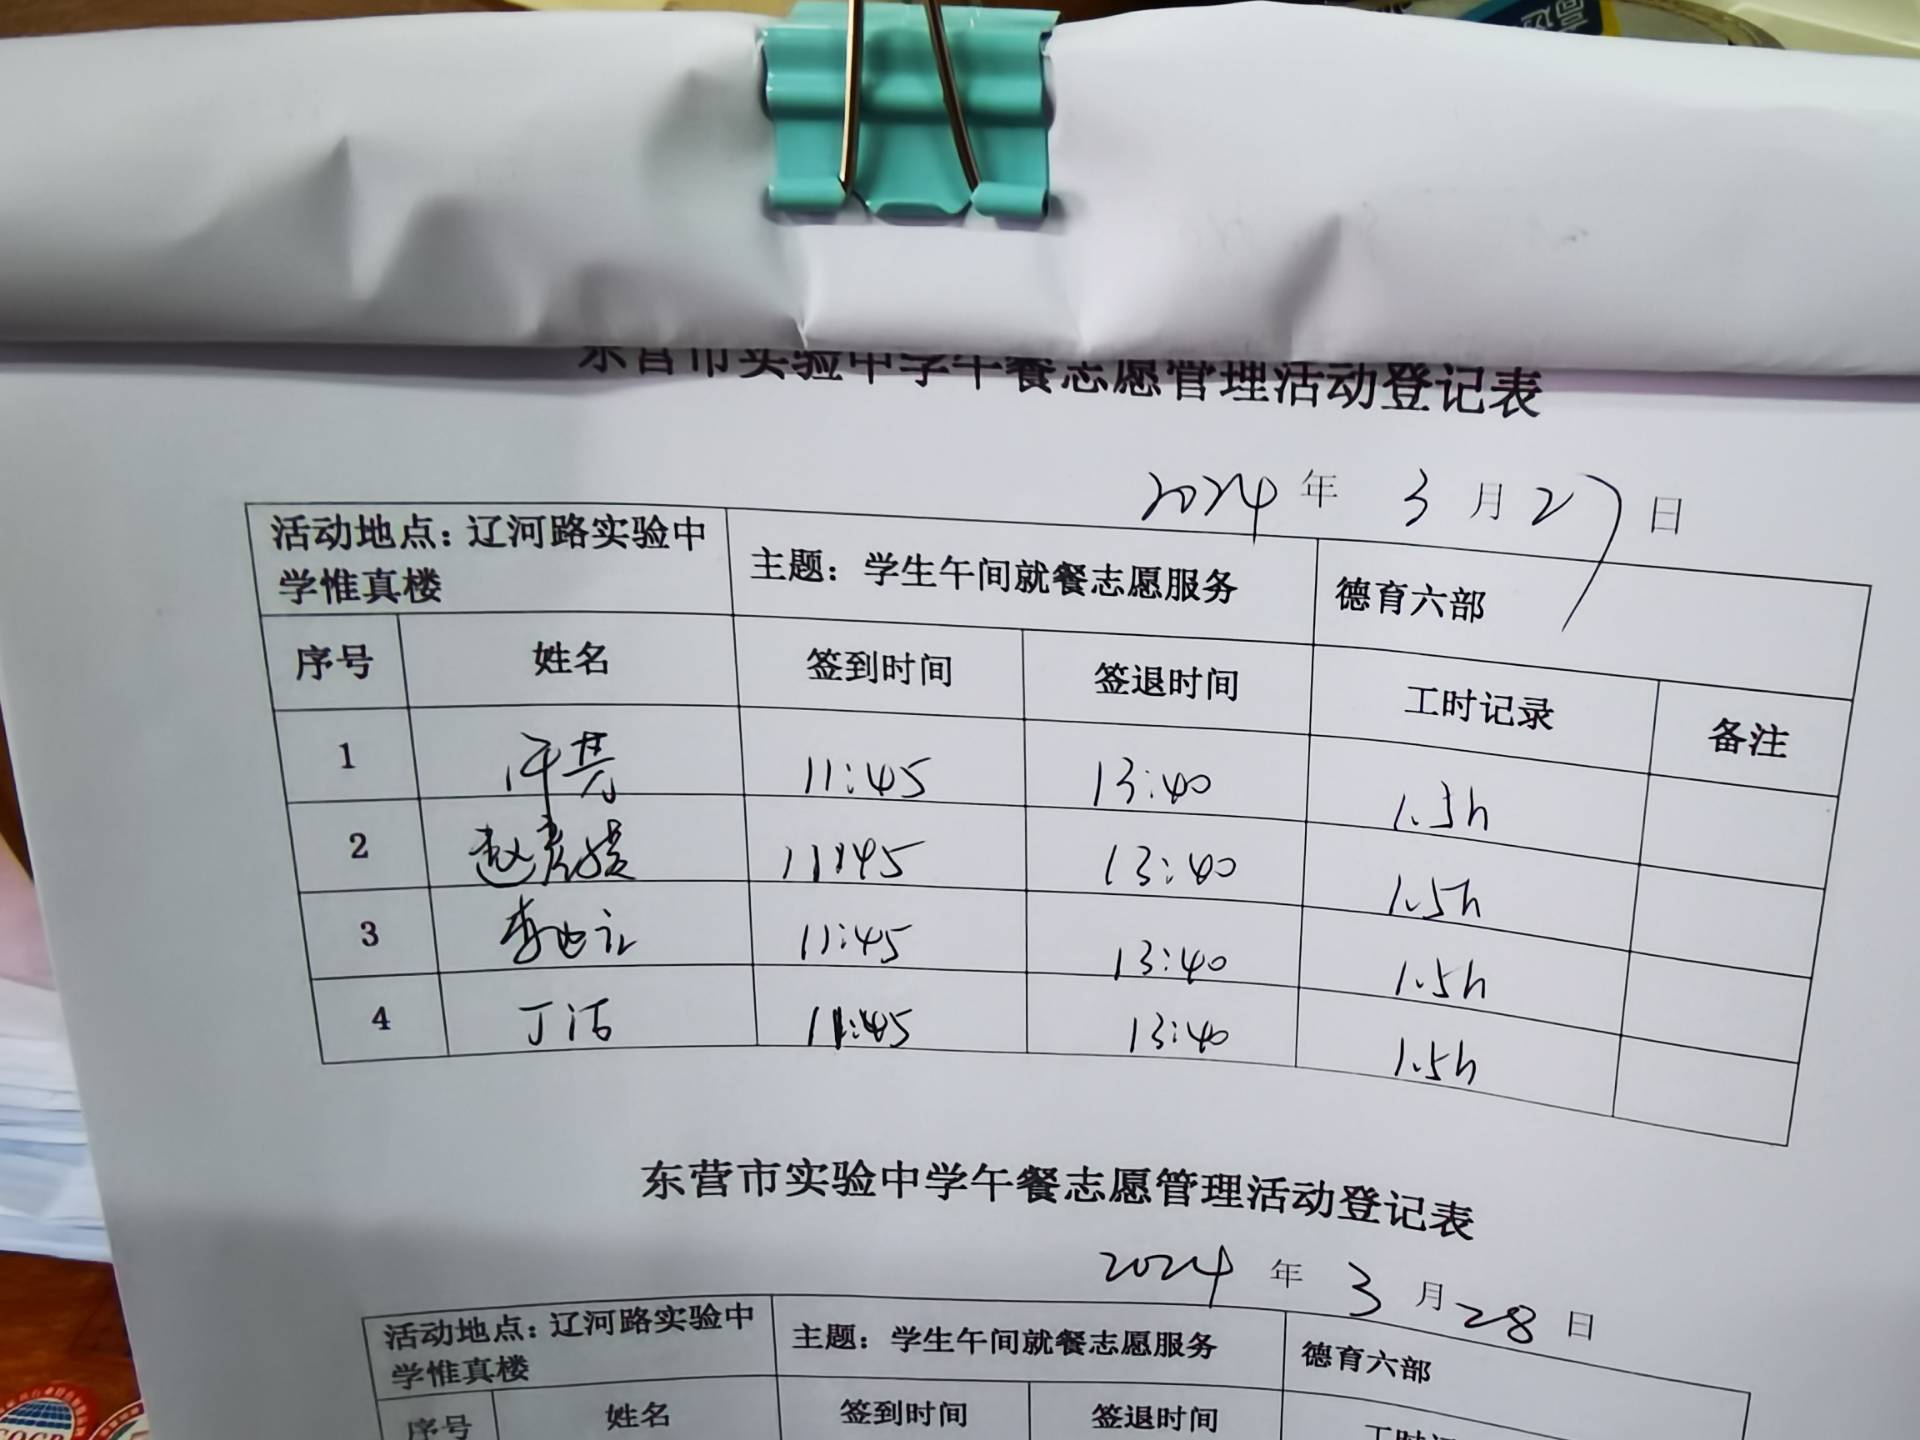 东营市实验中学午餐志愿管理活动登记表
2024 年 3 月 27 日
活动地点：辽河路实验中学惟真楼 主题：学生午间就餐志愿服务 德育六部
序号 姓名 签到时间 签退时间 工时记录 备注
1 11:45 13:40 1.5h
2 赵 11:45 13:40 1.5h
3 李 11:45 13:40 1.5h
4 丁洁 11:45 13:40 1.5h
东营市实验中学午餐志愿管理活动登记表
2024 年 3 月 28 日
活动地点：辽河路实验中学惟真楼 主题：学生午间就餐志愿服务 德育六部
序号 姓名 签到时间 签退时间 工时记